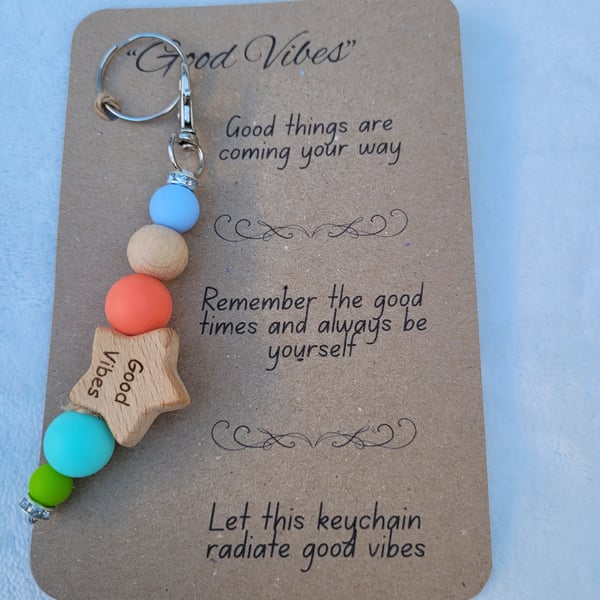 “Good Vibes”
Good things are
coming your way
Remember the good
times and always be
yourself
Good
Vibes
Let this keychain
radiate good vibes